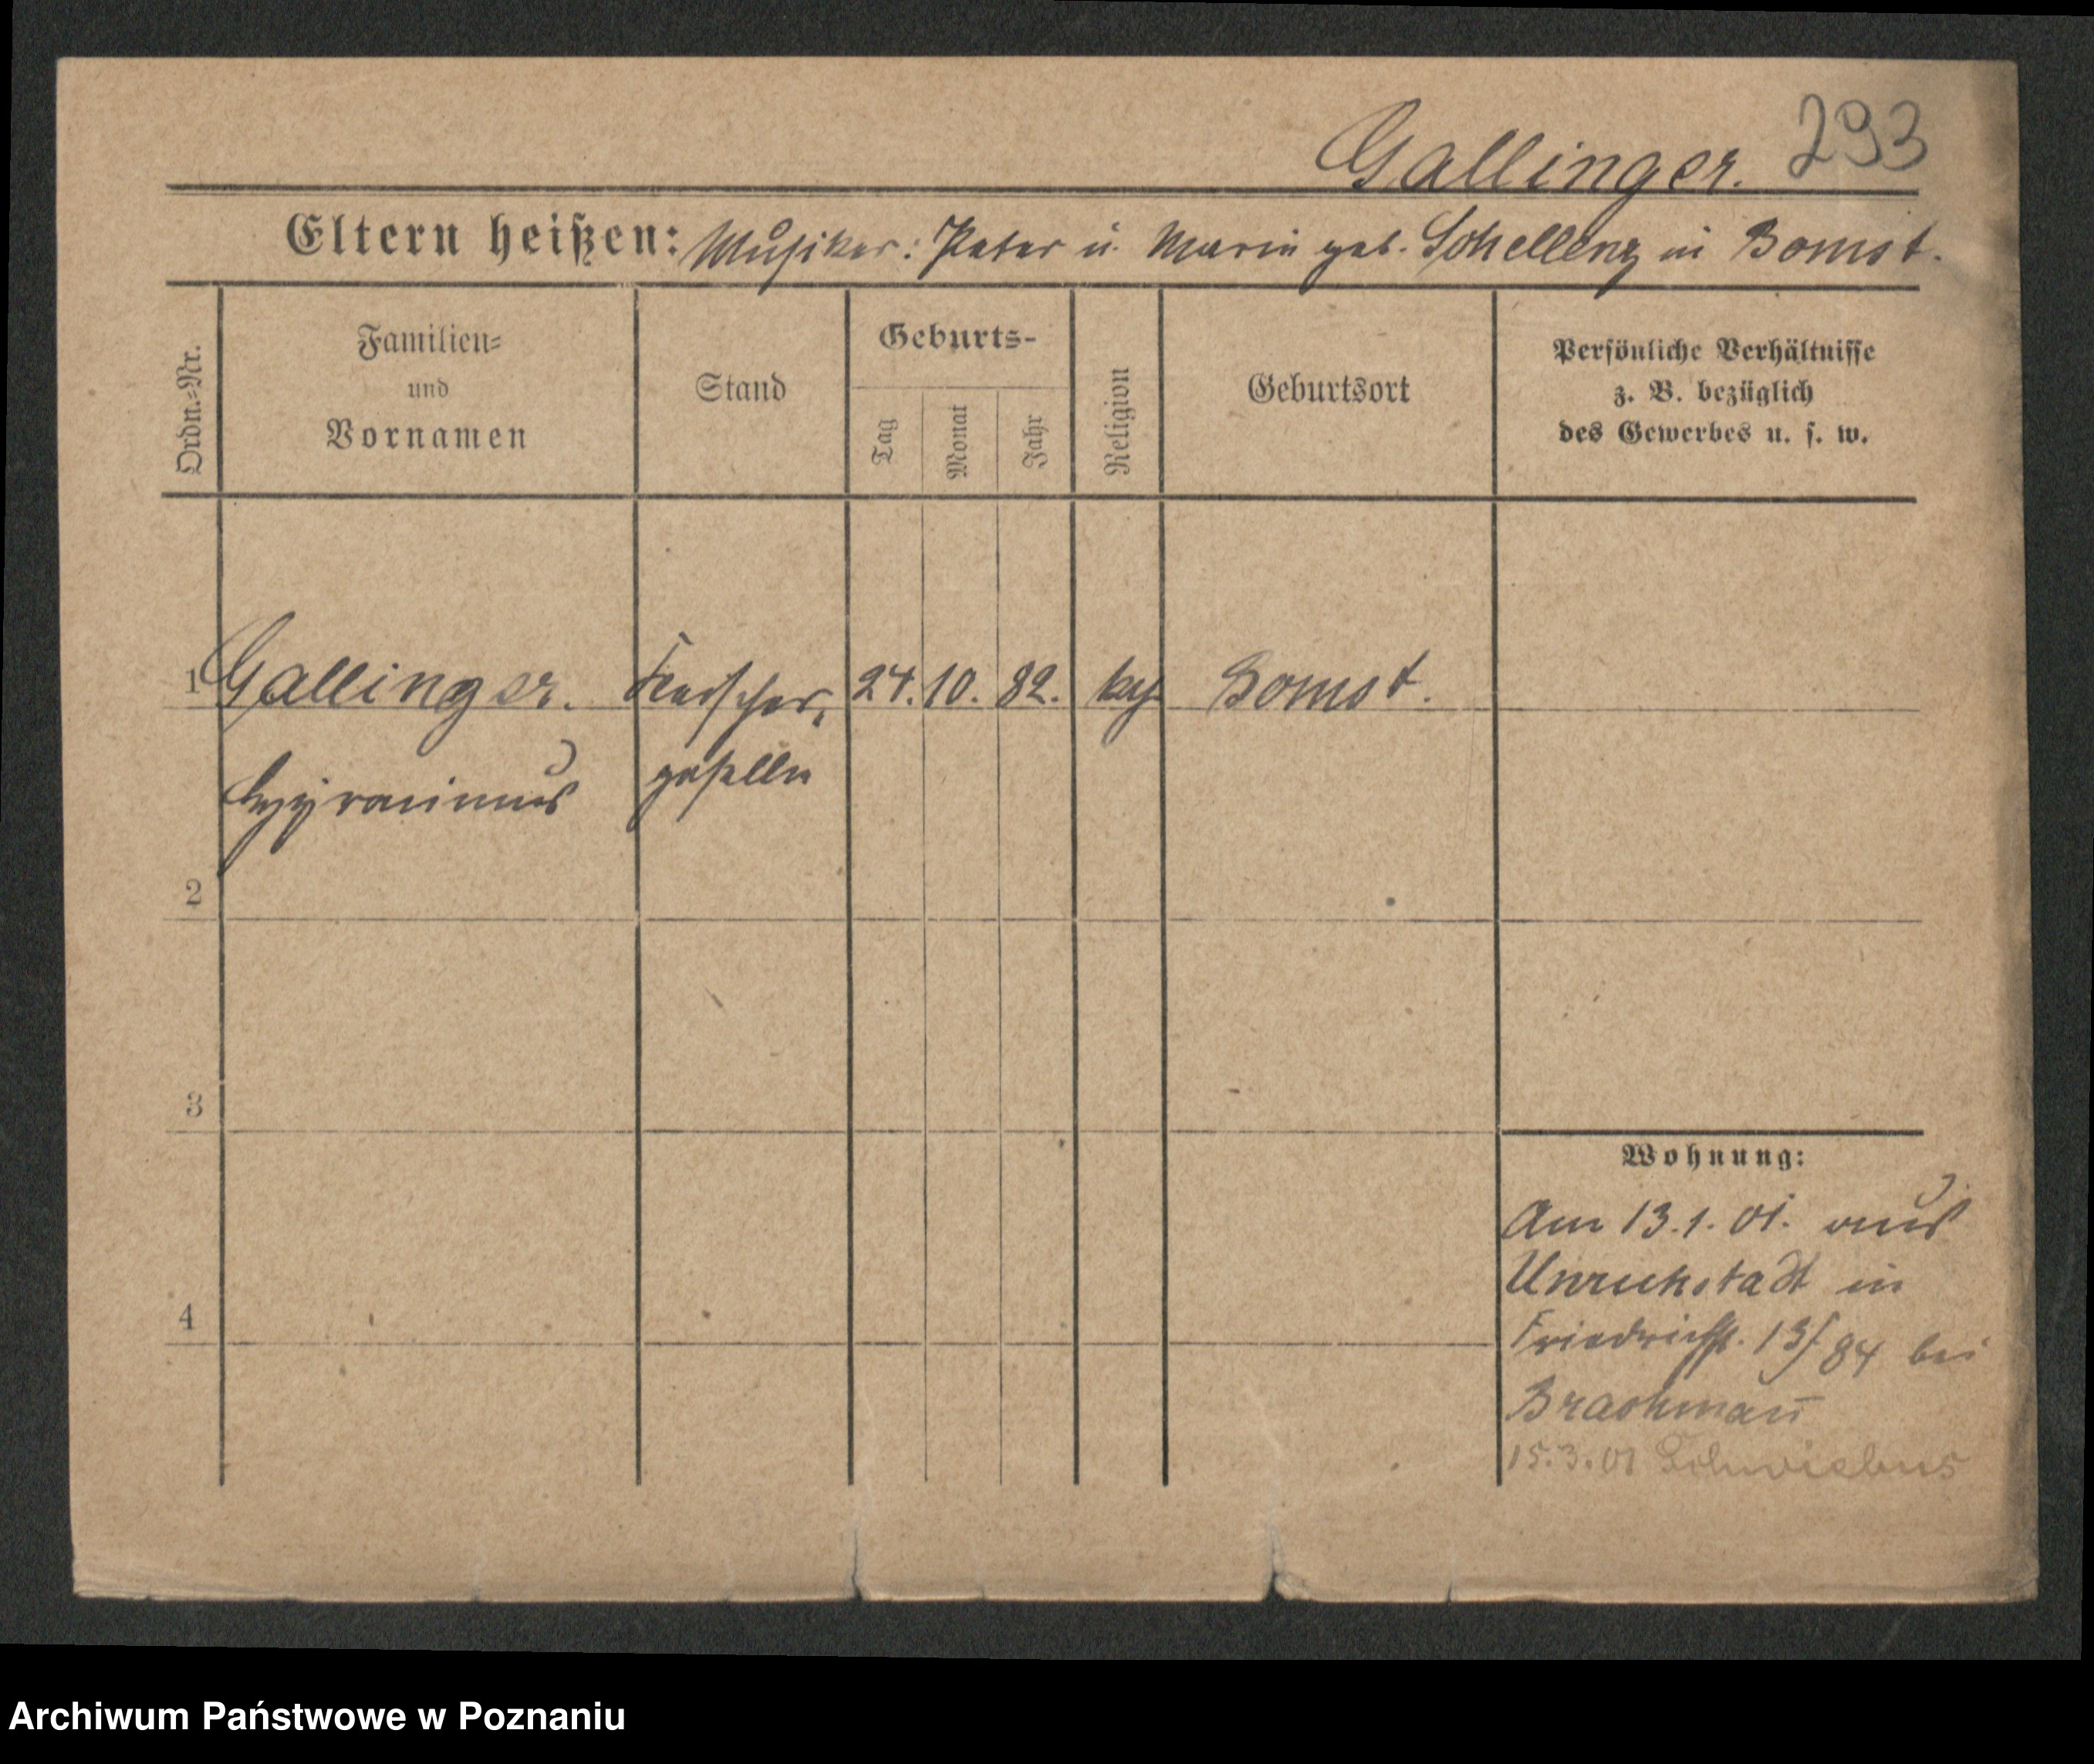 293
Gallinger.
Eltern heißen: Musiker: Peter u. Marie geb. Schellenz in Bomst.
Ordn.-Nr.
Familien-
und
Vornamen
Stand
Geburts-
Tag
Monat
Jahr
Religion
Geburtsort
Persönliche Verhältnisse
z. B. bezüglich
des Gewerbes u. s. w.
1 Gallinger. 24. 10. 82. Bomst.
geselle
2
3
4
Wohnung:
Am 13.1.01. aus
Unruhstadt in
Friedrichst. 13/84 bei
Brachman̄
15.3.01 Schwiebus
Archiwum Państwowe w Poznaniu